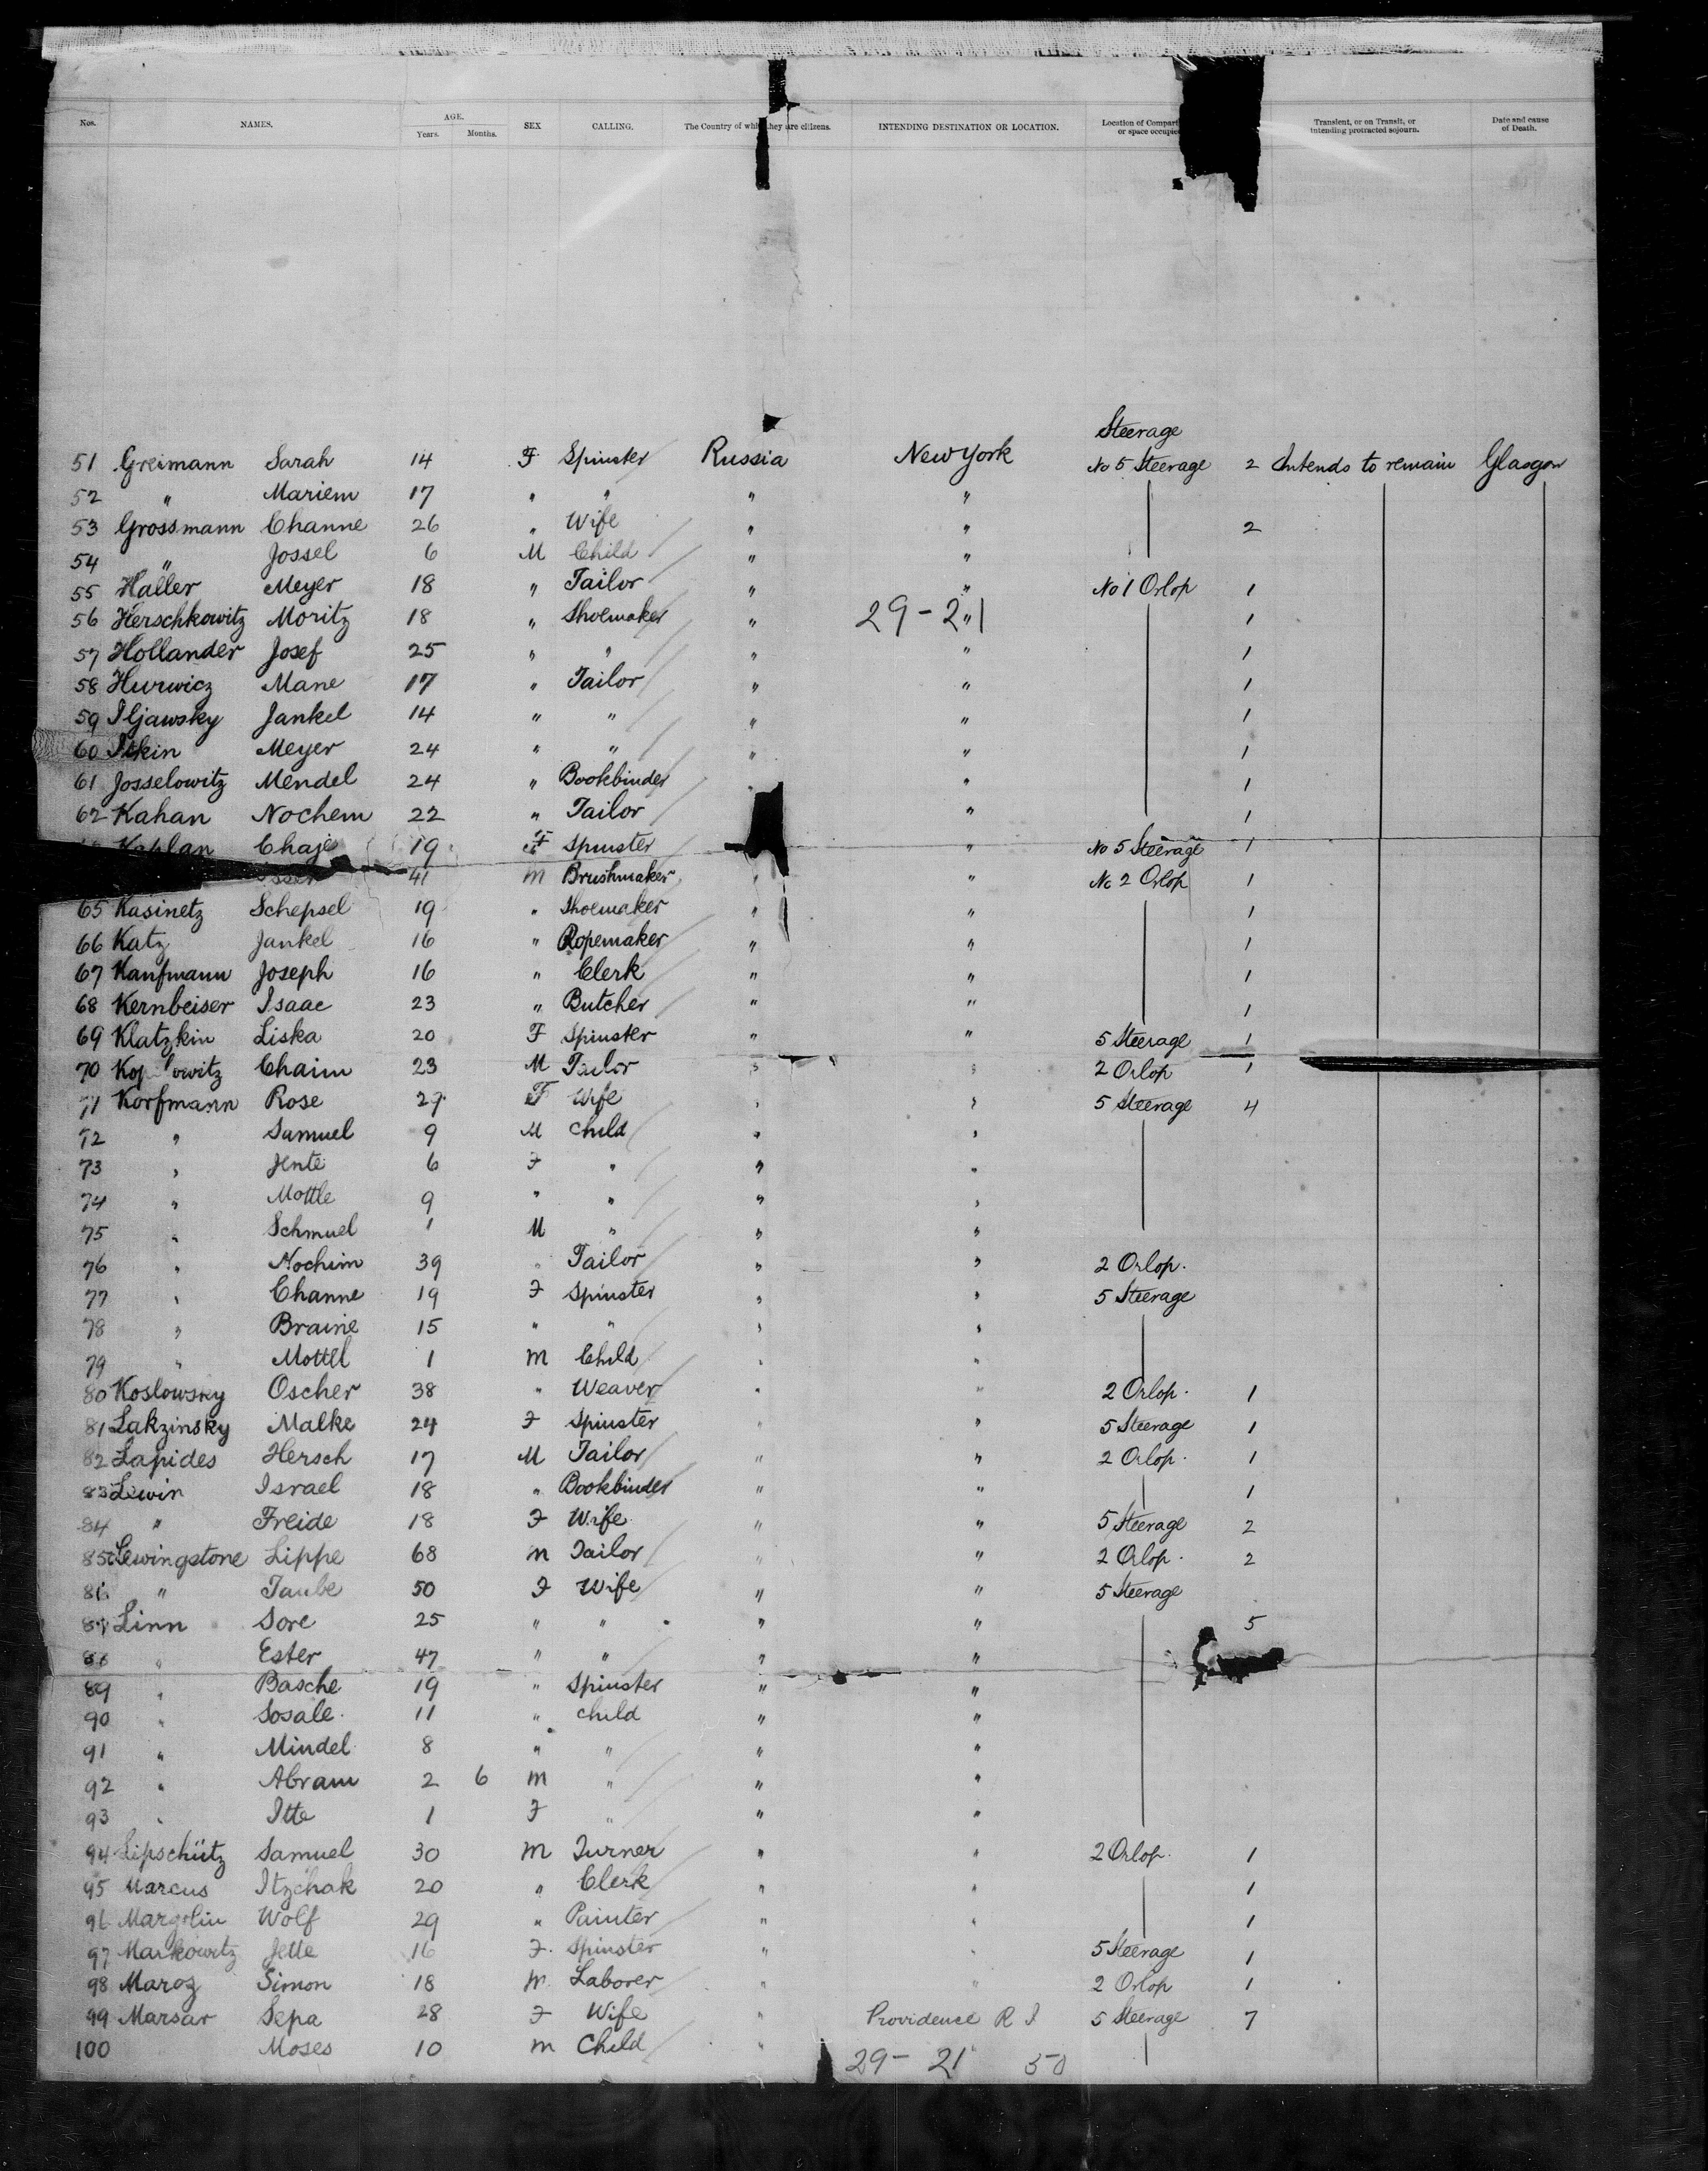 Nos. NAMES. AGE. Years. Months. SEX CALLING. The Country of whi they are citizens. INTENDING DESTINATION OR LOCATION. Location of Compart or space occupie Transient, or on Transit, or intending protracted sojourn. Date and cause of Death.
Steerage
51 Greimann Sarah 14 F Spinster Russia New York No 5 Steerage 2 Intends to remain Glasgow
52 " Mariem 17 " " " "
53 Grossmann Channe 26 " Wife " " 2
54 " Jossel 6 M Child " "
55 Haller Meyer 18 " Tailor " " No 1 Orlop 1
56 Herschkowitz Moritz 18 " Shoemaker " 29-21 " 1
57 Hollander Josef 25 " " " " 1
58 Hurwicz Mane 17 " Tailor " " 1
59 Iljawsky Jankel 14 " " " " 1
60 Itkin Meyer 24 " " " " 1
61 Josselowitz Mendel 24 " Bookbinder " 1
62 Kahan Nochem 22 " Tailor " 1
Kaplan Chaje 19 F Spinster " No 5 Steerage 1
41 M Brushmaker " " No 2 Orlop 1
65 Kasinetz Schepsel 19 " Shoemaker " " 1
66 Katz Jankel 16 " Ropemaker " " 1
67 Kaufmann Joseph 16 " Clerk " " 1
68 Kernbeiser Isaac 23 " Butcher " " 1
69 Klatzkin Liska 20 F Spinster " " 5 Steerage 1
70 Chaim 23 M Tailor " " 2 Orlop 1
71 Korfmann Rose 29 F Wife " " 5 Steerage 4
72 " Samuel 9 M Child " "
73 " Jente 6 F " " "
74 " Mottle 9 " " " "
75 " Schmuel 1 M " " "
76 " Nochim 39 " Tailor " " 2 Orlop.
77 " Channe 19 F Spinster " " 5 Steerage
78 " Braine 15 " " " "
79 " Mottel 1 M Child " "
80 Koslowsky Oscher 38 " Weaver " " 2 Orlop. 1
81 Lakzinsky Malke 24 F Spinster " " 5 Steerage 1
82 Lapides Hersch 17 M Tailor " " 2 Orlop. 1
83 Lewin Israel 18 " Bookbinder " " 1
84 " Freide 18 F Wife " " 5 Steerage 2
85 Lewingstone Lippe 68 M Tailor " " 2 Orlop. 2
86 " Taube 50 F Wife " " 5 Steerage
87 Linn Sore 25 " " " " 5
88 " Ester 47 " " " "
89 " Basche 19 " Spinster " "
90 " Sosale 11 " child " "
91 " Mindel 8 " " " "
92 " Abram 2 6 M " " "
93 " Itte 1 F " " "
94 Lipschütz Samuel 30 M Turner " " 2 Orlop. 1
95 Marcus Itzchak 20 " Clerk " " 1
96 Margolin Wolf 29 " Painter " " 1
97 Markowitz Jette 16 F. Spinster " " 5 Steerage 1
98 Maroz Simon 18 M. Laborer " " 2 Orlop 1
99 Marsar Sepa 28 F Wife " Providence R I 5 Steerage 7
100 Moses 10 M Child "
29- 21 50